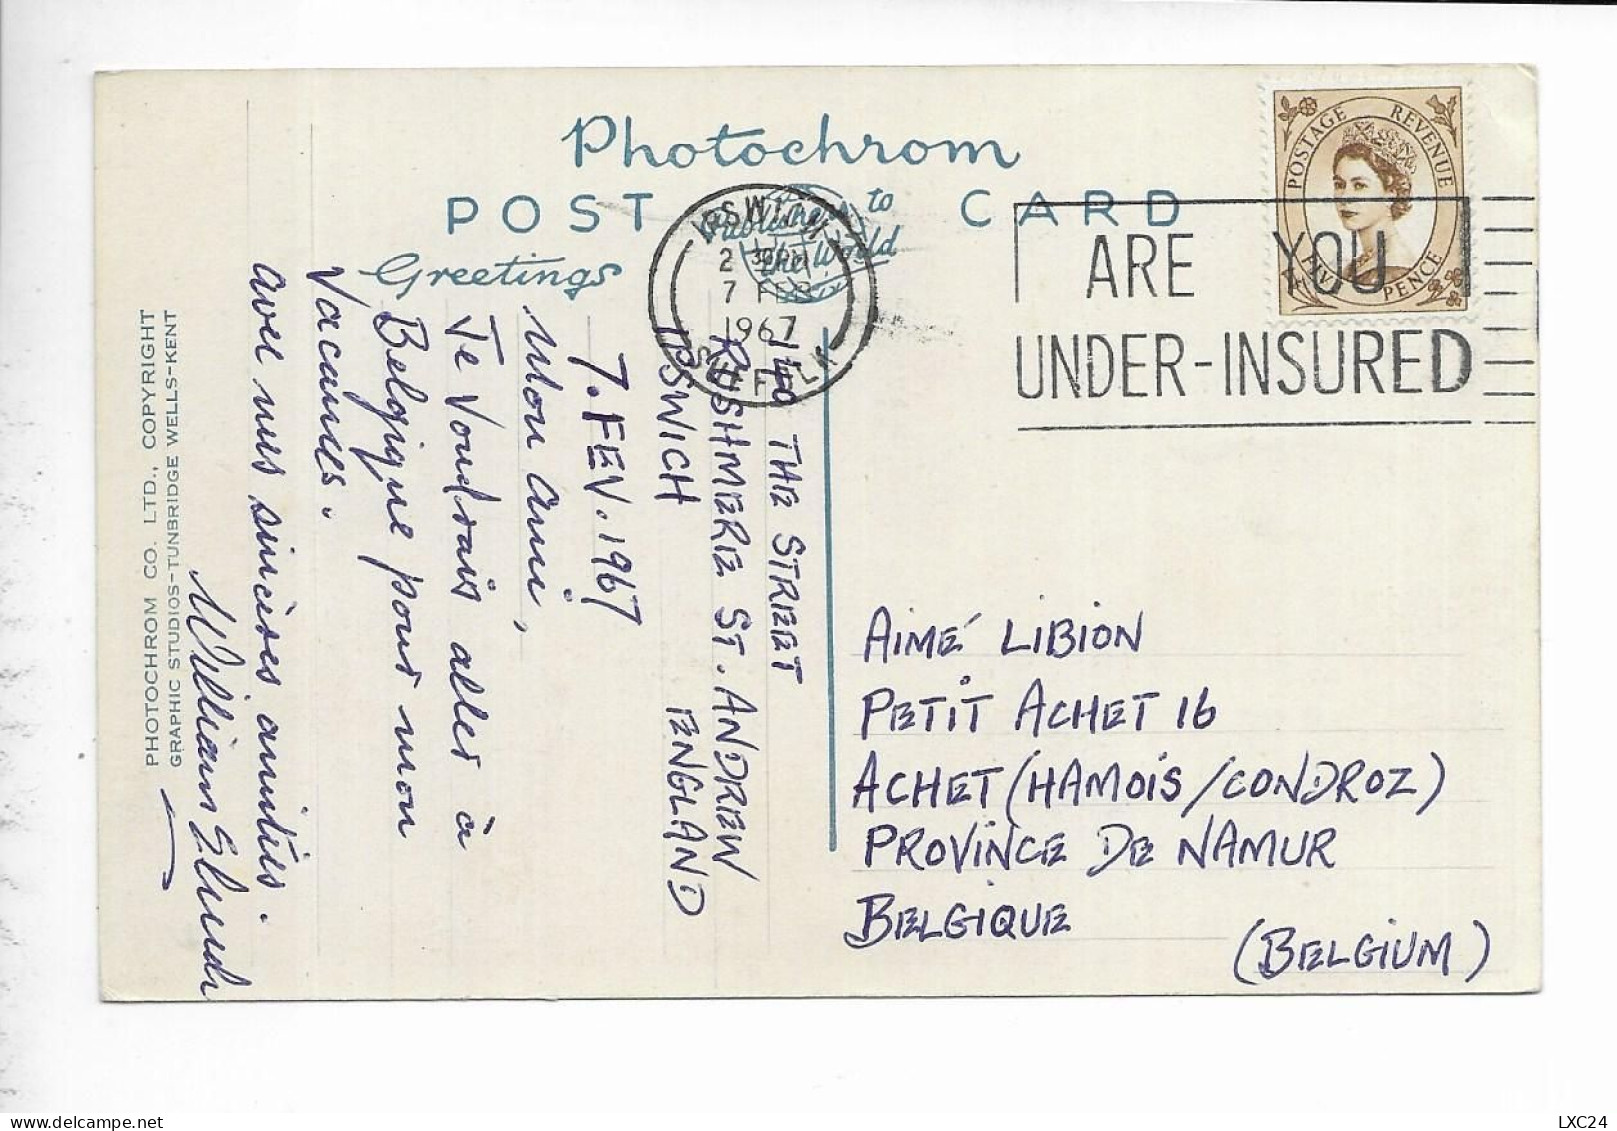 Photochrom
POST CARD
Greetings
Publishers to
the World
IPSWICH
2 30PM
7 FEB
1967
SUFFOLK
ARE YOU
UNDER-INSURED
POSTAGE REVENUE
FIVE PENCE
140 THE STREET
RUSHMERE ST. ANDREW
IPSWICH ENGLAND
7. FEV. 1967
Mon ami,
Je voudrais aller à
Belgique pour mon
vacances.
avec mes sincères amitiés.
William
PHOTOCHROM CO. LTD., COPYRIGHT
GRAPHIC STUDIOS-TUNBRIDGE WELLS-KENT
AIMÉ LIBION
PETIT ACHET 16
ACHET (HAMOIS/CONDROZ)
PROVINCE DE NAMUR
BELGIQUE
(BELGIUM)
LXC24